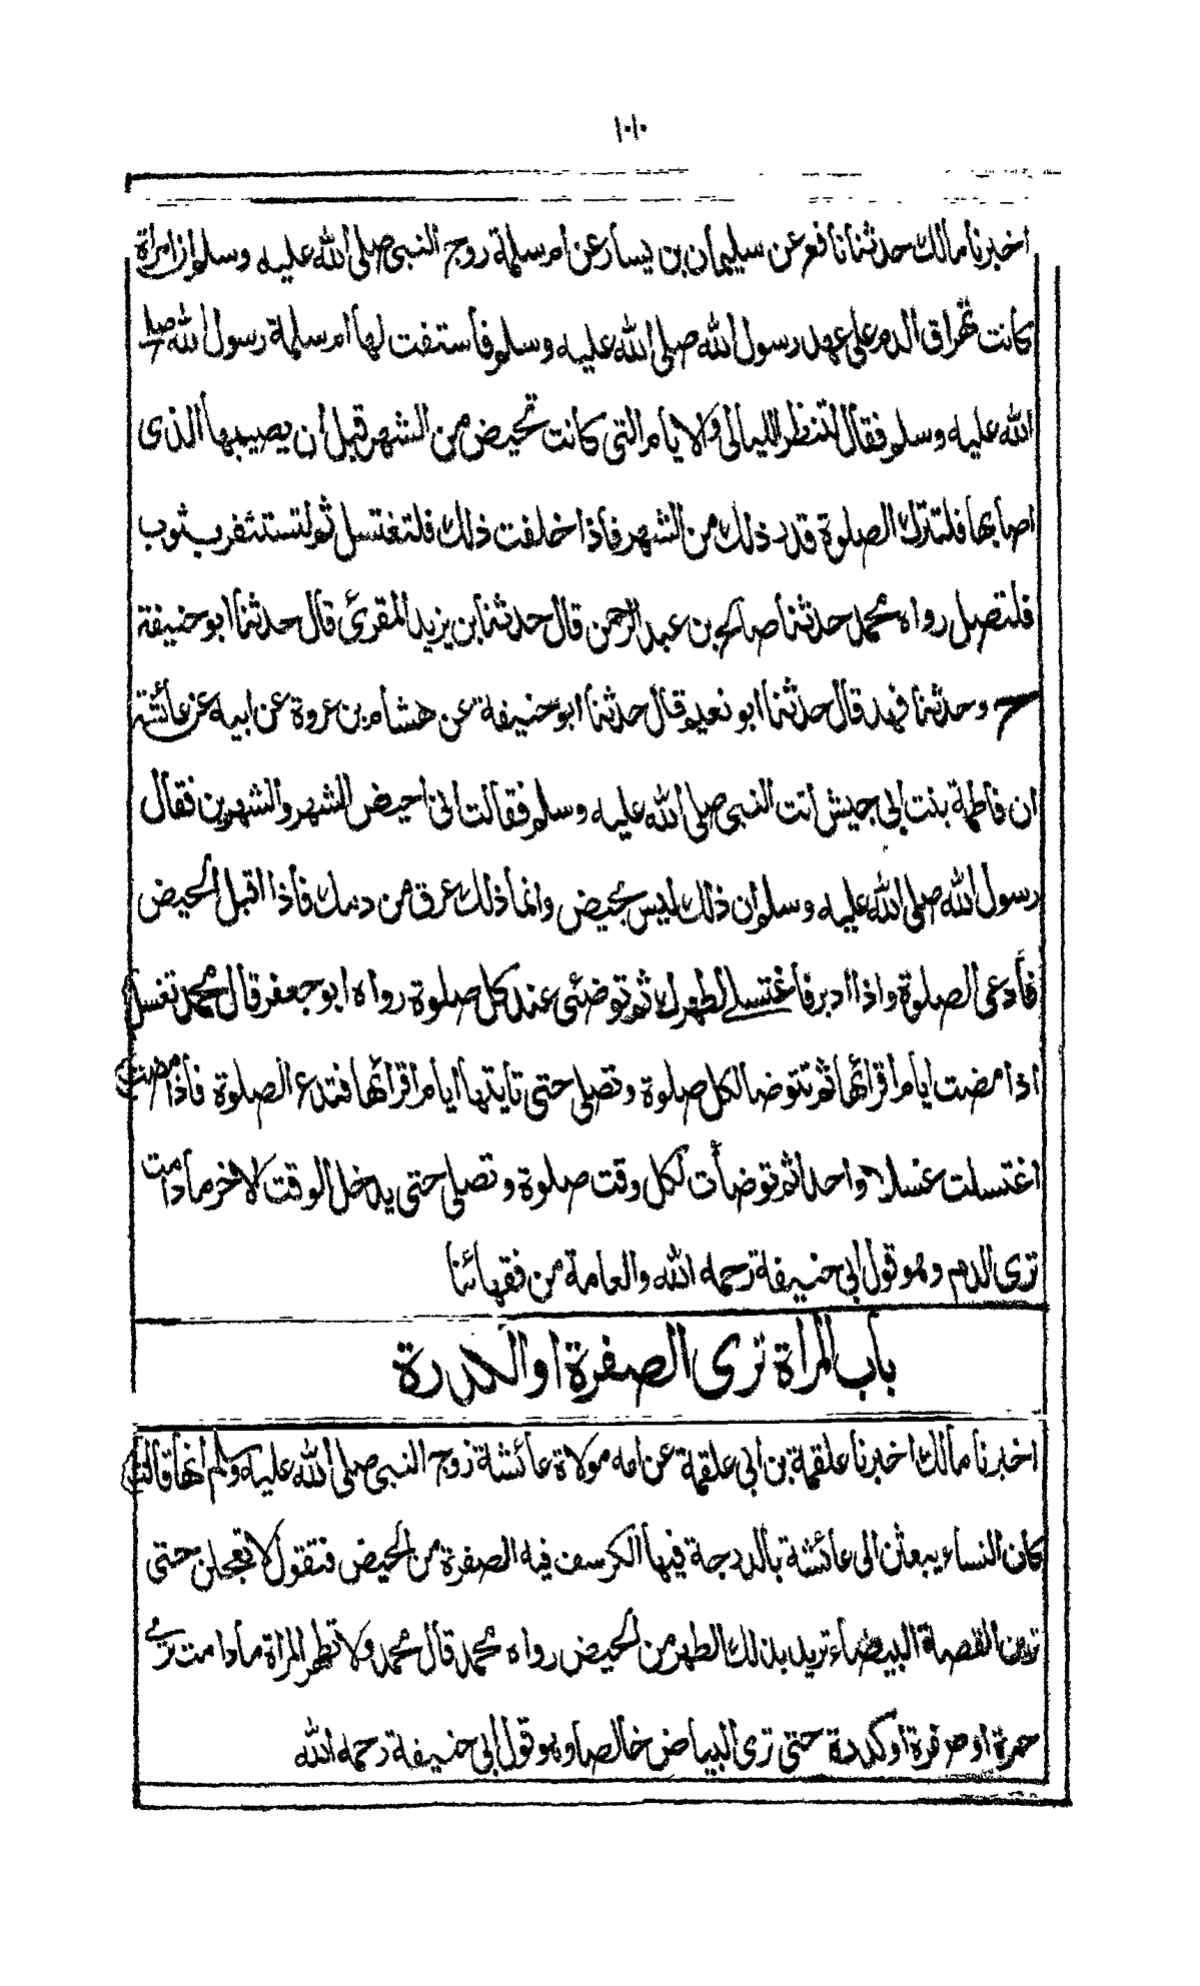 ١٠١٠
اخبرنا مالك حدثنا نافع عن سليمان بن يسار عن ام سلمة زوج النبي صلى الله عليه وسلم ان امرأة
كانت تهراق الدم على عهد رسول الله صلى الله عليه وسلم فاستفت لها ام سلمة رسول الله صلى
الله عليه وسلم فقال لتنظر الليالى والايام التى كانت تحيض من الشهر قبل أن يصيبها الذى
اصابها فلتترك الصلوة قدر ذلك من الشهر فاذا خلفت ذلك فلتغتسل ثم لتستثفر بثوب
فلتصل رواه محمد حدثنا صالح بن عبد الرحمن قال حدثنا بن يزيد المقرئ قال حدثنا ابو حنيفة
ح وحدثنا فهد قال حدثنا ابو نعيم قال حدثنا ابو حنيفة عن هشام بن عروة عن ابيه عن عائشة
ان فاطمة بنت ابى حبيش اتت النبى صلى الله عليه وسلم فقالت انى احيض الشهر والشهرين فقال
رسول الله صلى الله عليه وسلم ان ذلك ليس بحيض وانما ذلك عرق من دمك فاذا اقبل الحيض
فأدعى الصلوة واذا ادبر فاغتسلى لطهرك ثم توضئى عند كل صلوة رواه ابو جعفر قال محمد تغسل
اذا مضت ايام اقرائها ثم تتوضا لكل صلوة وتصلى حتى تايتها ايام اقرائها فتدع الصلوة فاذا مضت
اغتسلت غسلا واحدا ثم توضأت لكل وقت صلوة وتصلى حتى يدخل الوقت الاخر مادامت
ترى الدم وهو قول ابى حنيفة رحمه الله والعامة من فقهائنا
باب المرأة ترى الصفرة او الكدرة
اخبرنا مالك اخبرنا علقمة بن ابى علقمة عن امه مولاة عائشة زوج النبى صلى الله عليه وسلم انها قالت
كان النساء يبعثن الى عائشة بالدرجة فيها الكرسف فيه الصفرة من الحيض فتقول لا تعجلن حتى
ترين القصة البيضاء تريد بذلك الطهر من الحيض رواه محمد قال محمد ولا تطهر المرأة مادامت ترى
حمرة او صفرة او كدرة حتى ترى البياض خالصا وهو قول ابى حنيفة رحمه الله